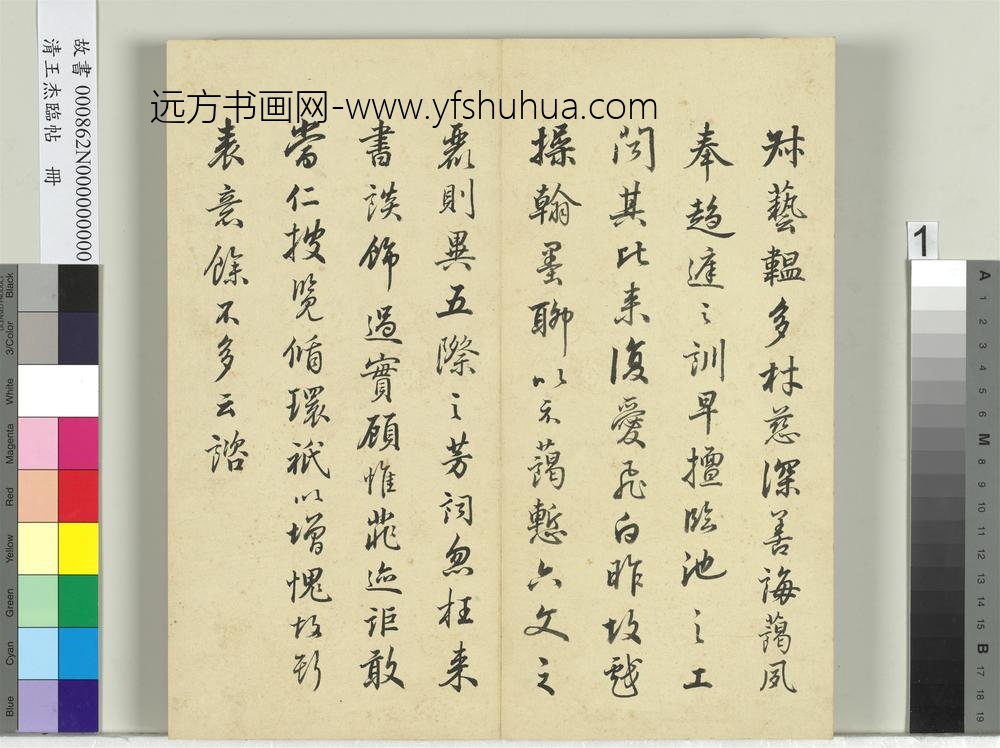 远方书画网-www.yfshuhua.com
故書 000862N000000000
清王杰臨帖 冊
叔藝韞多材慈深善誨藹夙
奉趨庭之訓早擅臨池之工
問其比来復愛飛白昨故戲
操翰墨聊以示藹慙六文之
麗則異五際之芳詞忽枉来
書談飾過實顧惟菲迹詎敢
當仁披覽循環祇以增愧故斯
表意餘不多云諮
1
Black
3/Color
White
Magenta
Red
Yellow
Green
Cyan
Blue
A
1
2
3
4
5
6
M
8
9
10
11
12
13
14
15
B
17
18
19